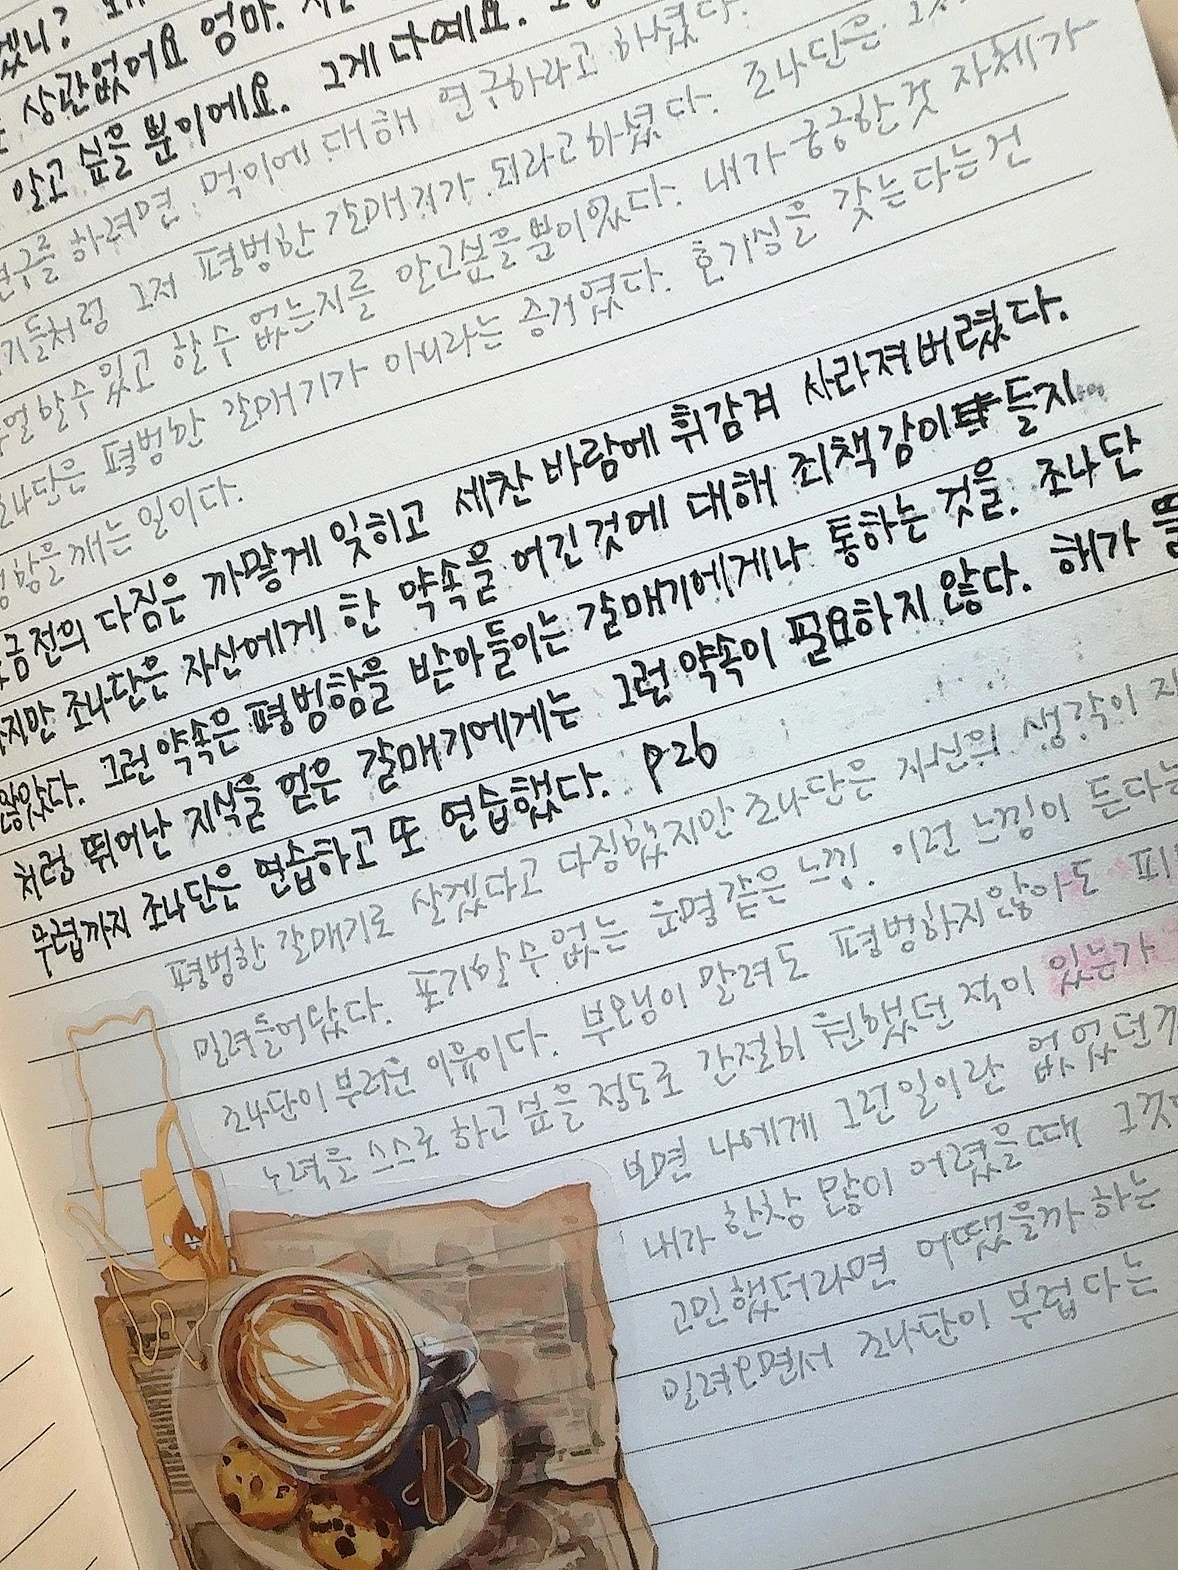 상관없어요 엄마.
알고 싶을 뿐이에요. 그게 다예요.
연구를 하려면 먹이에 대해 연구하라고 하셨다.
기들처럼 그저 평범한 갈매기가 되라고하셨다. 조나단은
할수있고 할수 없는지를 알고싶을뿐이었다. 내가 궁금한것 자체가
조나단은 평범한 갈매기가 아니라는 증거였다. 호기심을 갖는다는건
깨는 일이다.
금전의 다짐은 까맣게 잊히고 세찬 바람에 휘감겨 사라져버렸다.
조나단은 자신에게 한 약속을 어긴것에 대해 죄책감이 들지
않았다. 그런 약속은 평범함을 받아들이는 갈매기에게나 통하는 것을. 조나단
처럼 뛰어난 지식을 얻은 갈매기에게는 그런 약속이 필요하지 않다. 해가 뜰
무렵까지 조나단은 연습하고 또 연습했다. p26
평범한 갈매기로 살겠다고 다짐했지만 조나단은 자신의 생각이
밀려들어왔다. 포기할수 없는 운명같은 느낌. 이런 느낌이 든다는
조나단이 부러운 이유이다. 부모님이 말려도 평범하지않아도
노력을 스스로 하고싶을 정도로 간절히 원했던 적이 있는가
보면 나에게 그런일이란 없었던
내가 한창 많이 어렸을때
고민했더라면 어땠을까 하는
밀려오면서 조나단이 부럽다는